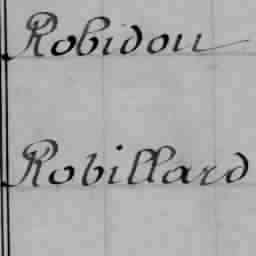 Robidou
Robillard